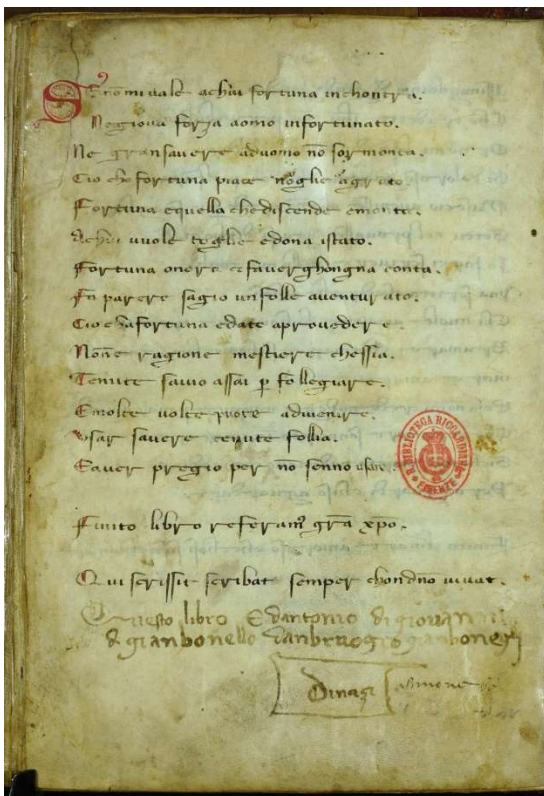 Senno mi vale a chui fortuna in chontra.
Ne giova forza a omo infortunato.
Ne gran savere ad uomo nō sormonta.
Cio che a fortuna piace nō gli e a grato.
Fortuna e quella che discende e monta.
A chui vuole toglie e dona istato.
Fortuna onora e fa verghongna e onta.
Fa parere sagio un folle aventurato.
Cio che a fortuna e dato a provedere.
None ragione mestiere chessia.
Tenute savio assai p follegiare.
E molte volte avenire.
Usar savere tenute follia.
E aver pregio per nō senno
Finito libro referam9 gr̄a xpo.
Qui scrissit scribat semper chon dno vivat.
Questo libro e d antonio di giovanni
di gianbonello d anbruogio gianbonelli
BIBLIOTECA RICCARDIANA
FIRENZE